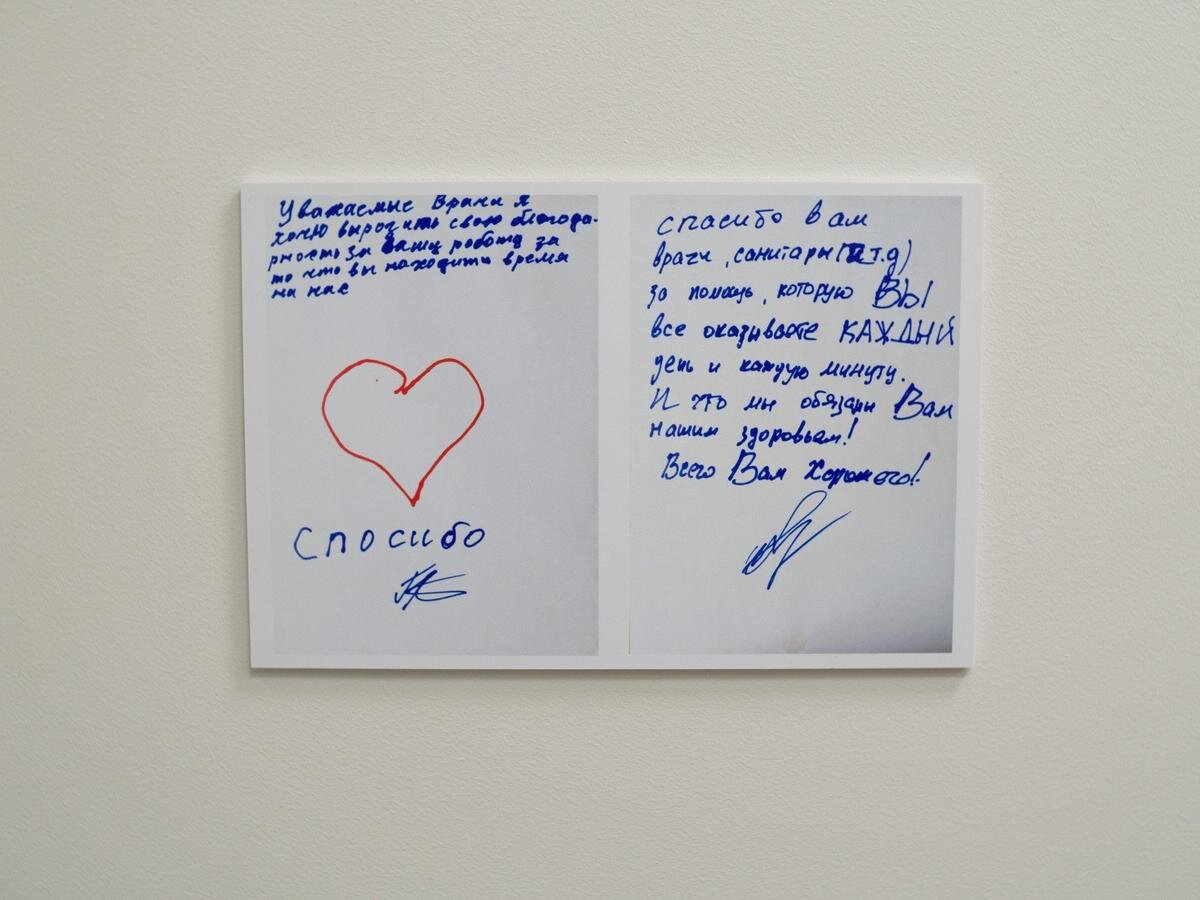 Уважаемые Врачи я
хочю вырозить свою благода-
рность за Вашу роботу за
то что вы находити время
на нас
Спосибо
спасибо вам
врачи, санитары (и т.д)
за помощь, которую ВЫ
все оказываете КАЖДЫЙ
день и каждую минуту.
И что мы обязаны Вам
нашим здоровьем!
Всего Вам Хорошего!